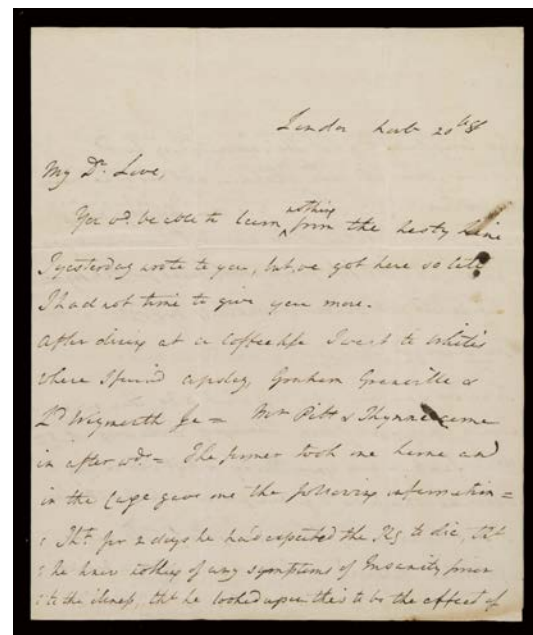 London Novb 20th 88
My Dr. Love,
You wd. be able to learn nothing from the hasty line
I yesterday wrote to you, but we got here so late
I had not time to give you more.
After dining at a Coffeehse I went to White's
where I found Apsley, Graham Grenville &
Ld Weymouth &c = Wm Pitt & Thynne came
in after wds. = The former took me home and
in the Cage gave me the following information =
: Tht. for 2 days he had expected the Kg to die, tht
: he knew nothing of any symptoms of Insanity prior
: to the illness, tht he looked upon this to be the effect of